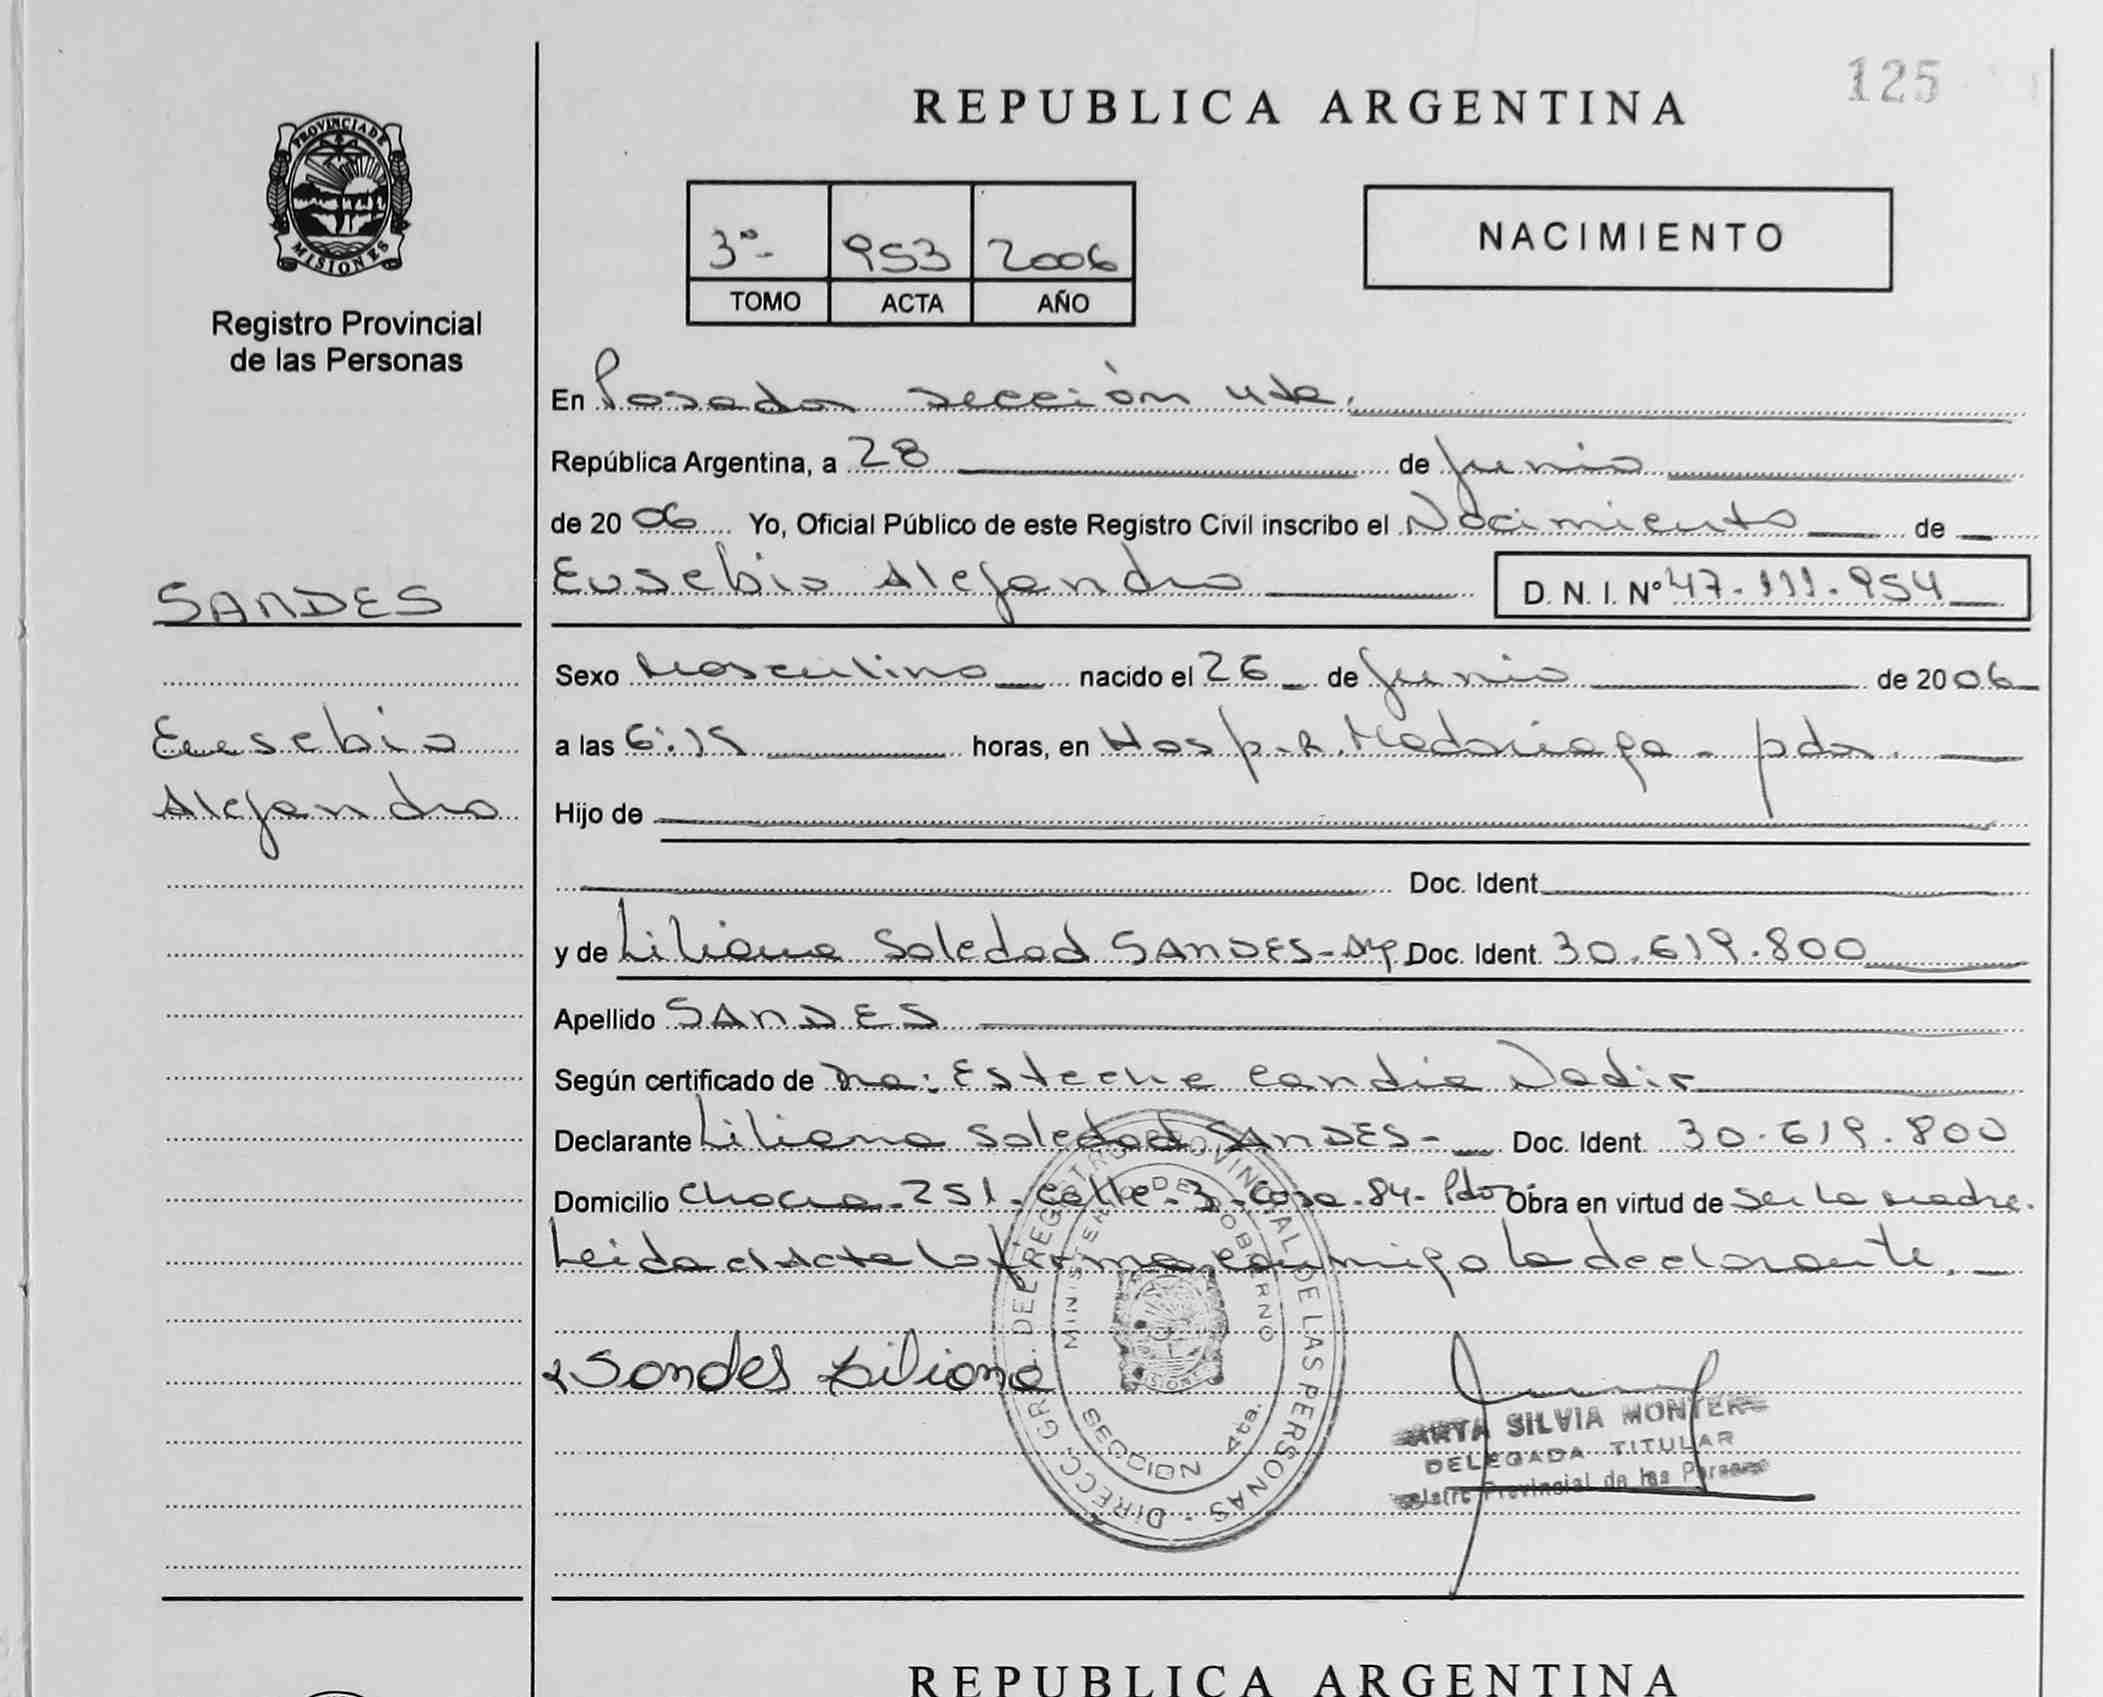 125
REPUBLICA ARGENTINA
PROVINCIA DE
MISIONES
Registro Provincial
de las Personas
3º- 953 2006
TOMO ACTA AÑO
NACIMIENTO
En Posadas sección 4ta.
República Argentina, a 28 de Junio
de 20 06 Yo, Oficial Público de este Registro Civil inscribo el Nacimiento de
SANDES
Eusebio Alejandro D.N.I. Nº 47.111.954
Sexo Masculino nacido el 26 de Junio de 20 06
Eusebio
a las 6:15 horas, en Hosp. R. Madariaga - pdas.
Alejandro
Hijo de
Doc. Ident
y de Liliana Soledad SANDES - Arg Doc. Ident. 30.619.800
Apellido SANDES
Según certificado de Esteche Candia Nadir
Declarante Liliana Soledad SANDES - Doc. Ident. 30.619.800
Domicilio Chacra - 251 - Calle - 3 - Casa - 84 - Pdas. Obra en virtud de ser la madre.
Leida el Acta la firma conmigo la declarante.
DIRECC. GR. DEL REGISTRO PROVINCIAL DE LAS PERSONAS
MINISTERIO DE GOBIERNO
MISIONES
SECCION 4ta.
Sandes Liliana
SILVIA MONTERO
DELEGADA TITULAR
Provincial de las Personas
REPUBLICA ARGENTINA